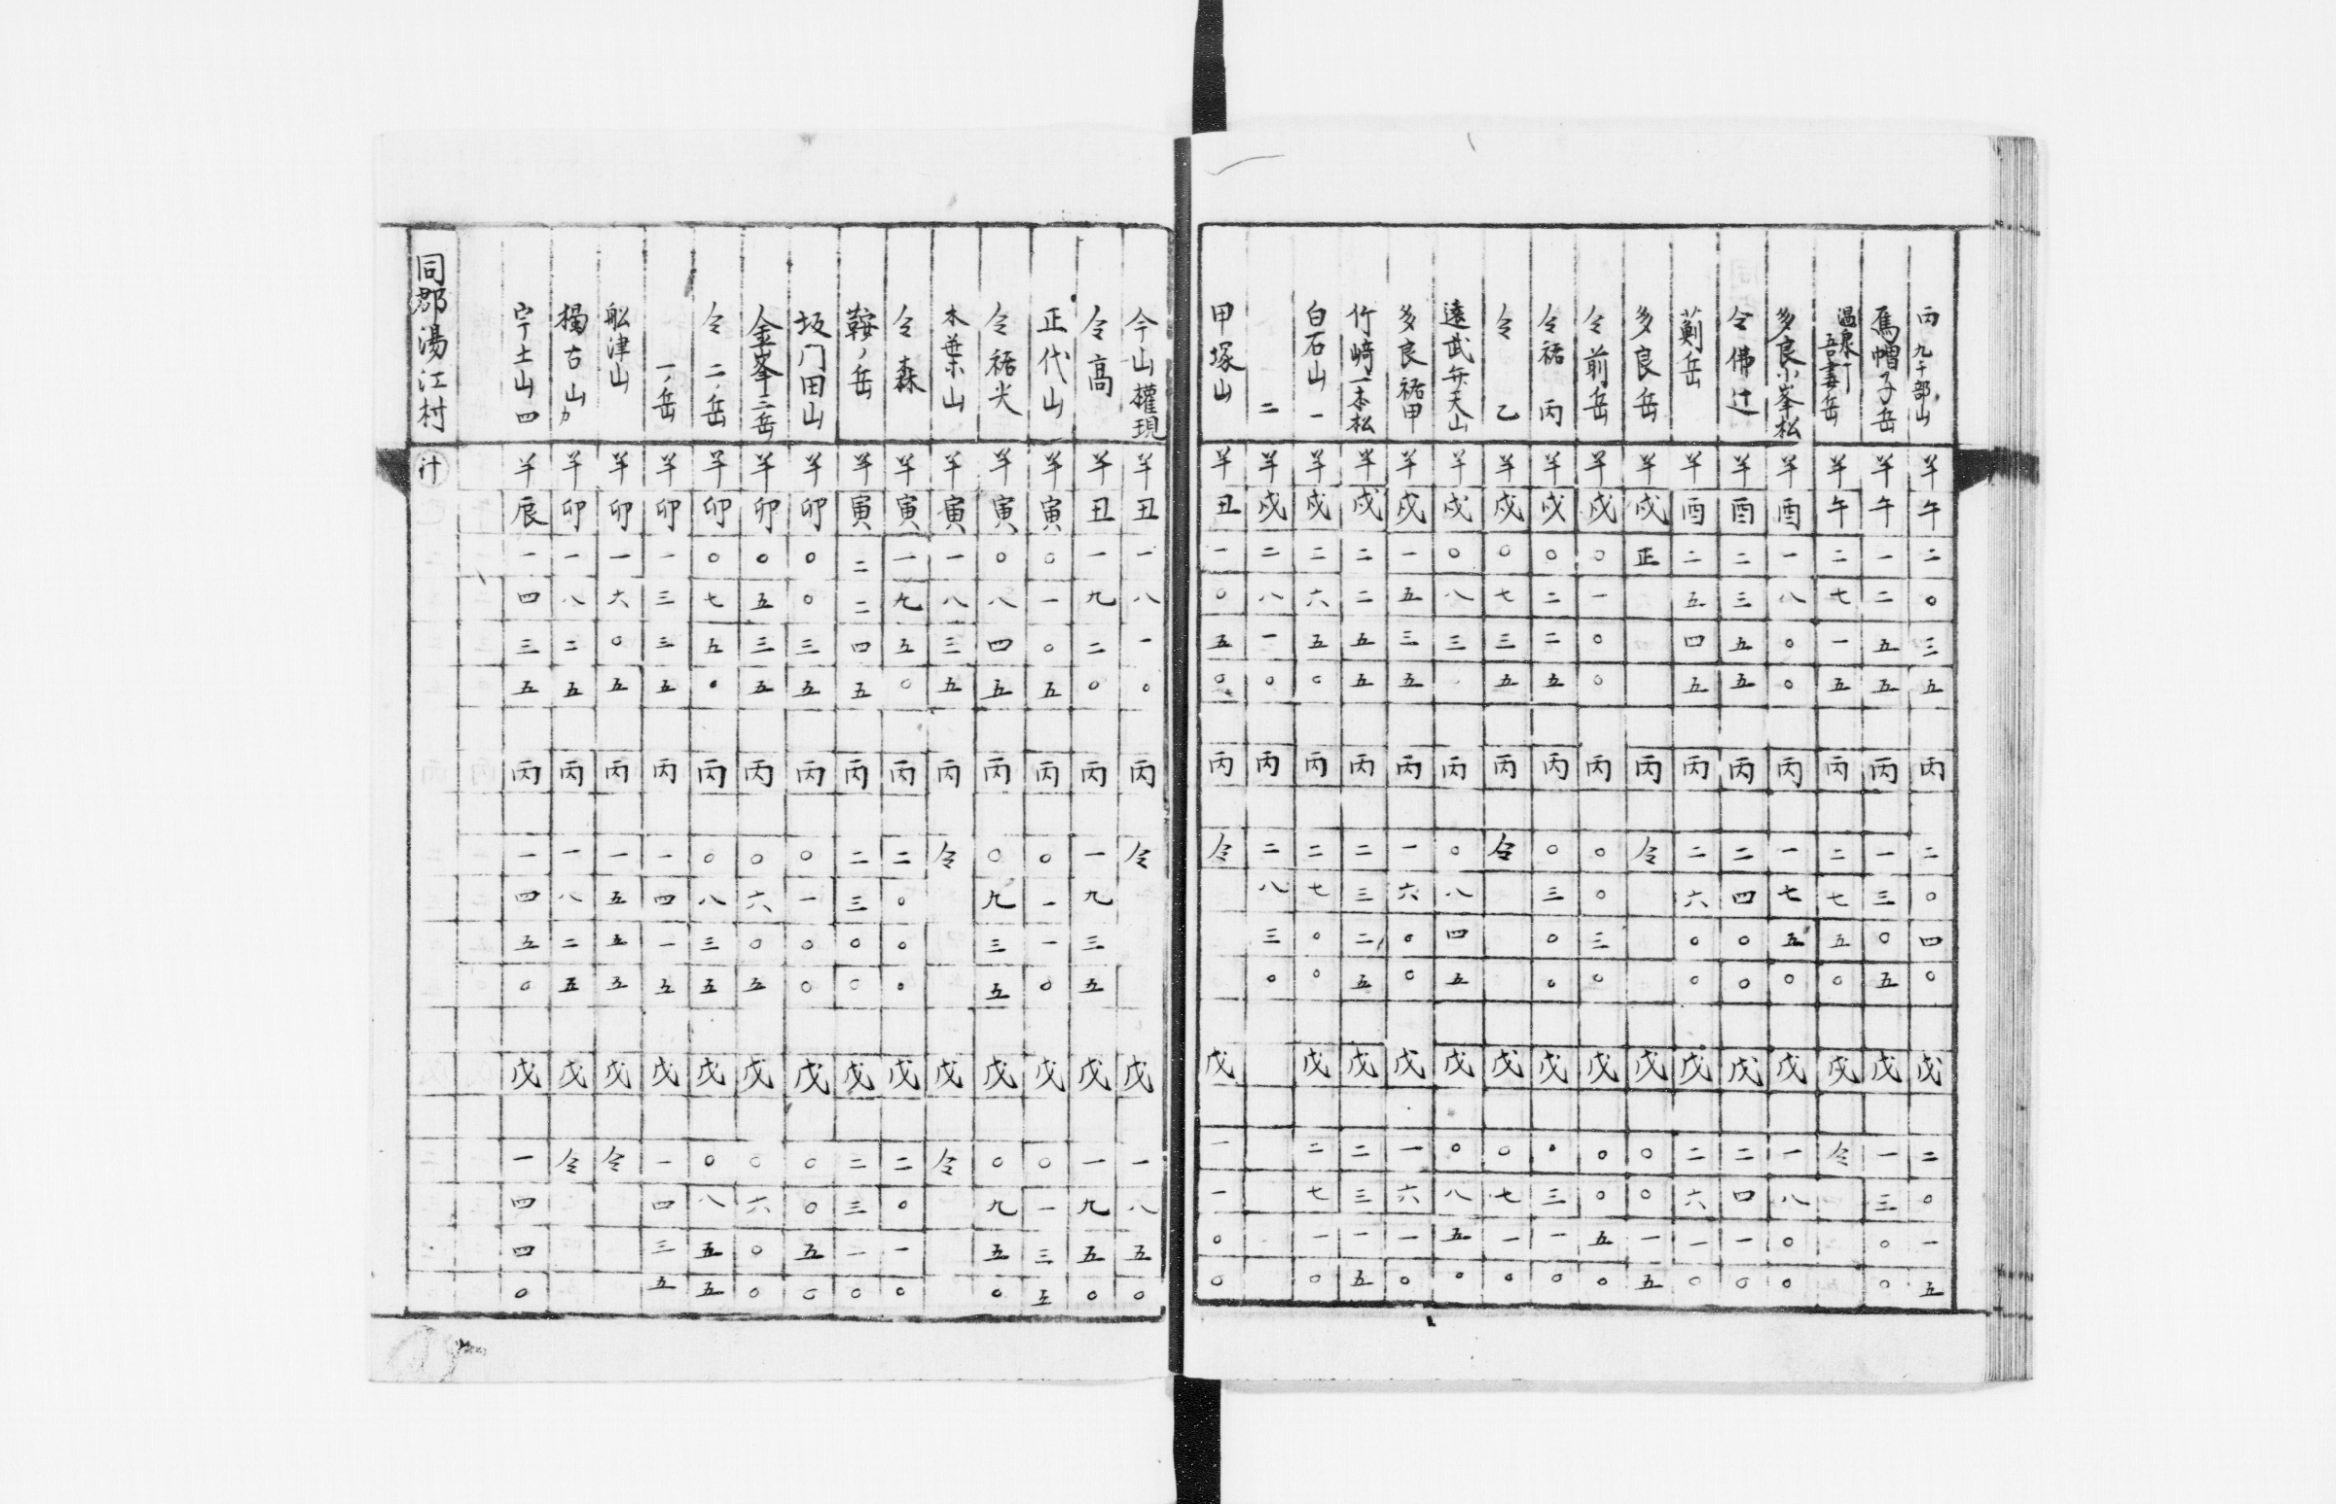 丙九千部山 羊午二〇三五 丙二〇四〇 戊二〇一五
烏帽子岳 羊午一二五五 丙一三〇五 戊一三〇〇
温泉町吾妻岳 羊午二七一五 丙二七五〇 戊仝
多良小峯松 羊酉一八〇〇 丙一七五〇 戊一八〇〇
仝佛辻 羊酉二三五五 丙二四〇〇 戊二四一〇
薊岳 羊酉二五四五 丙二六〇〇 戊二六一〇
多良岳 羊戌正 丙仝 戊〇〇一五
仝前岳 羊戌〇一〇〇 丙〇〇三〇 戊〇〇五〇
仝裾丙 羊戌〇二二五 丙〇三〇〇 戊〇三一〇
仝乙 羊戌〇七三五 丙仝 戊〇七一〇
遠武弁天山 羊戌〇八三 丙〇八四五 戊〇八五〇
多良裾甲 羊戌一五三五 丙一六〇〇 戊一六一〇
竹﨑一本松 羊戌二二五五 丙二三二五 戊二三一五
白石山一 羊戌二六五〇 丙二七〇〇 戊二七一〇
二 羊戌二八一〇 丙二八三〇
甲塚山 羊丑一〇五〇 丙仝 戊一一〇〇
今山權現 羊丑一八一〇 丙仝 戊一八五〇
仝高 羊丑一九二〇 丙一九三五 戊一九五〇
正代山 羊寅〇一〇五 丙〇一一〇 戊〇一三五
仝裾尖 羊寅〇八四五 丙〇九三五 戊〇九五〇
木葉山 羊寅一八三五 丙仝 戊仝
仝森 羊寅一九五〇 丙二〇〇〇 戊二〇一〇
鞍ノ岳 羊寅二二四五 丙二三〇〇 戊二三一〇
坂门田山 羊卯〇〇三五 丙〇一〇〇 戊〇〇五〇
金峯三岳 羊卯〇五三五 丙〇六〇五 戊〇六〇〇
仝二ノ岳 羊卯〇七五〇 丙〇八三五 戊〇八五五
一ノ岳 羊卯一三三五 丙一四一五 戊一四三五
舩津山 羊卯一六〇五 丙一五五五 戊仝
楊古山カ 羊卯一八二五 丙一八二五 戊仝
宇土山四 羊辰一四三五 丙一四五〇 戊一四四〇
同郡湯江村 汁